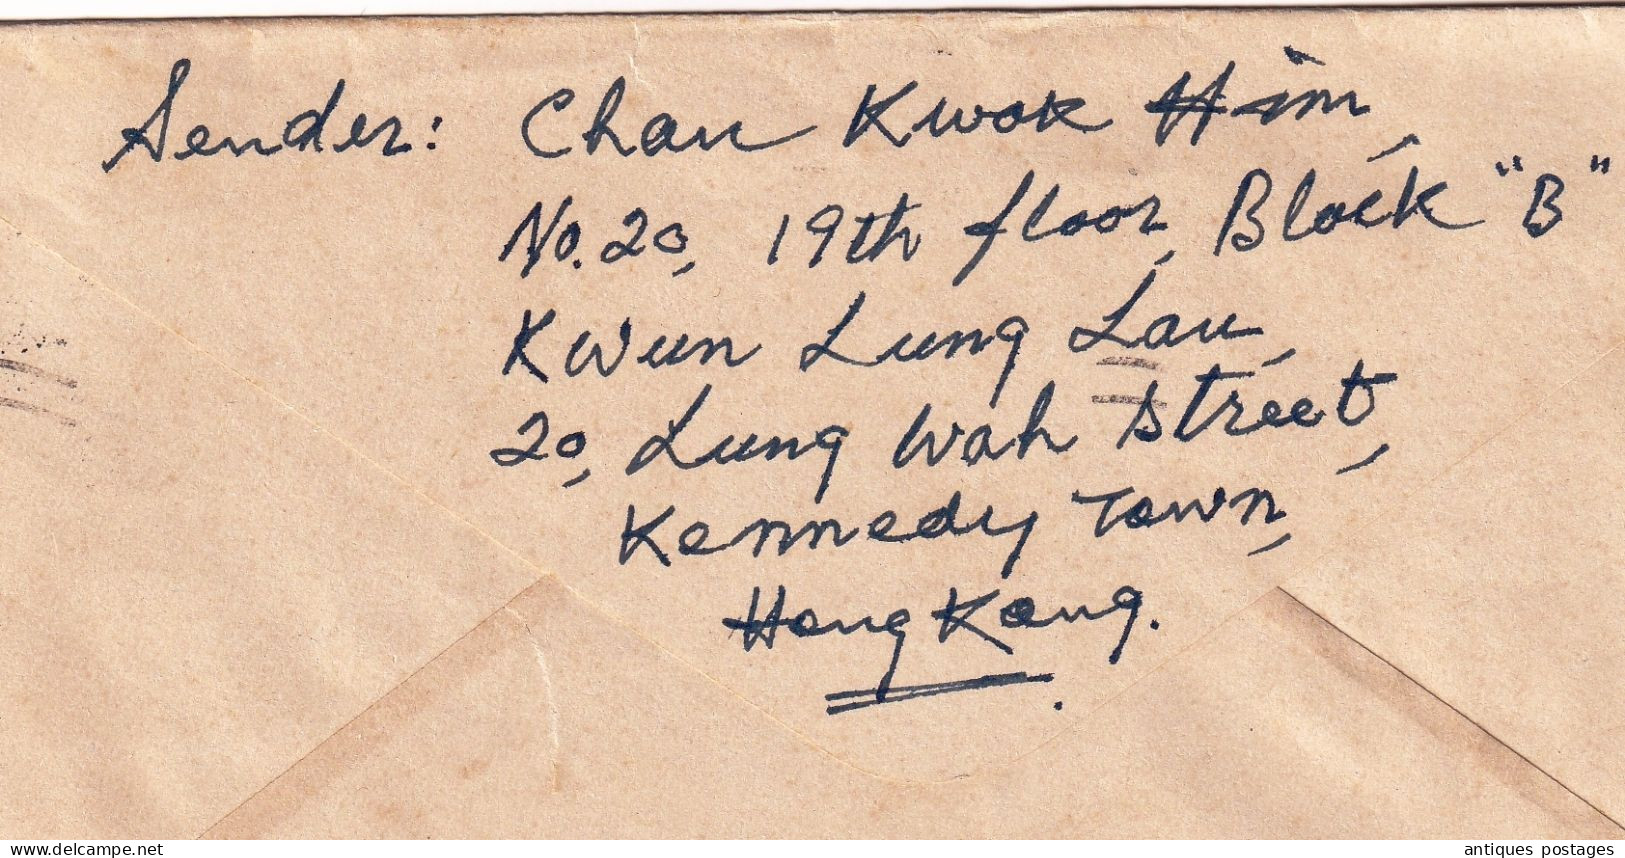 Sender: Chan Kwok Him,
No. 20, 19th floor, Block "B"
Kwun Lung Lau,
20, Lung Wah Street,
Kennedy Town,
Hong Kong.
antiques postages